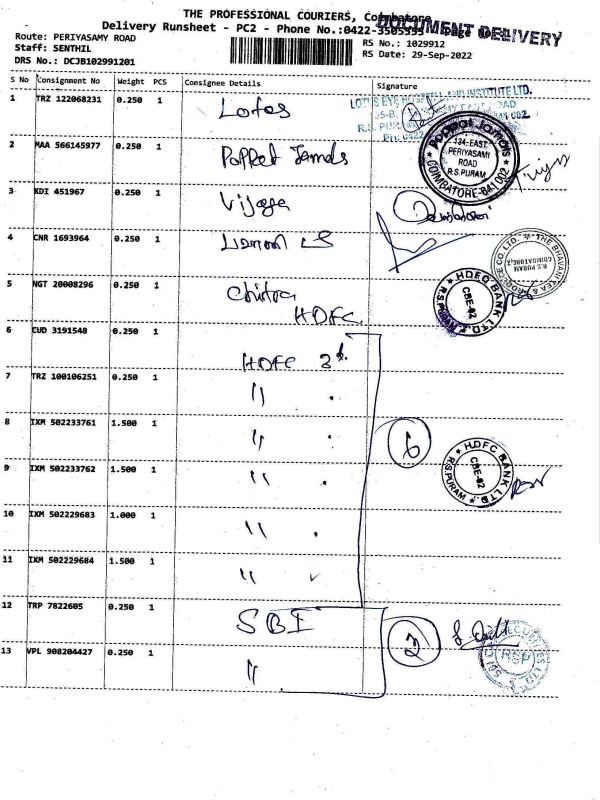 THE PROFESSIONAL COURIERS, Coimbatore
DOCUMENT DELIVERY
Delivery Runsheet - PC2 - Phone No.:0422-3505555
Route: PERIYASAMY ROAD
RS No.: 1029912
Staff: SENTHIL
RS Date: 29-Sep-2022
DRS No.: DCJB102991201
S No Consignment No Weight PCS Consignee Details Signature
1 TRZ 122068231 0.250 1 Lotas
LOTUS EYE HOSPITAL AND INSTITUTE LTD.
2 MAA 566145977 0.250 1
Poppat Jamals
134-EAST
PERIYASAMI
ROAD
R.S.PURAM
COIMBATORE-641 002
3 KDI 451967 0.250 1 Vijaya
4 CNR 1693964 0.250 1
R.S PURAM
COIMBATORE-2
5 NGT 20008296 0.250 1 Chitra
HDFC
HDFC BANK LTD.
CBE-02
R.S.PURAM
6 CUD 3191548 0.250 1 HDFC
7 TRZ 100106251 0.250 1 "
8 IXM 502233761 1.500 1 "
6
9 IXM 502233762 1.500 1 "
HDFC BANK LTD.
CBE-02
R.S.PURAM
10 IXM 502229683 1.000 1 "
11 IXM 502229684 1.500 1 "
12 TRP 7822605 0.250 1 SBI
2
13 VPL 908204427 0.250 1 "
RSP